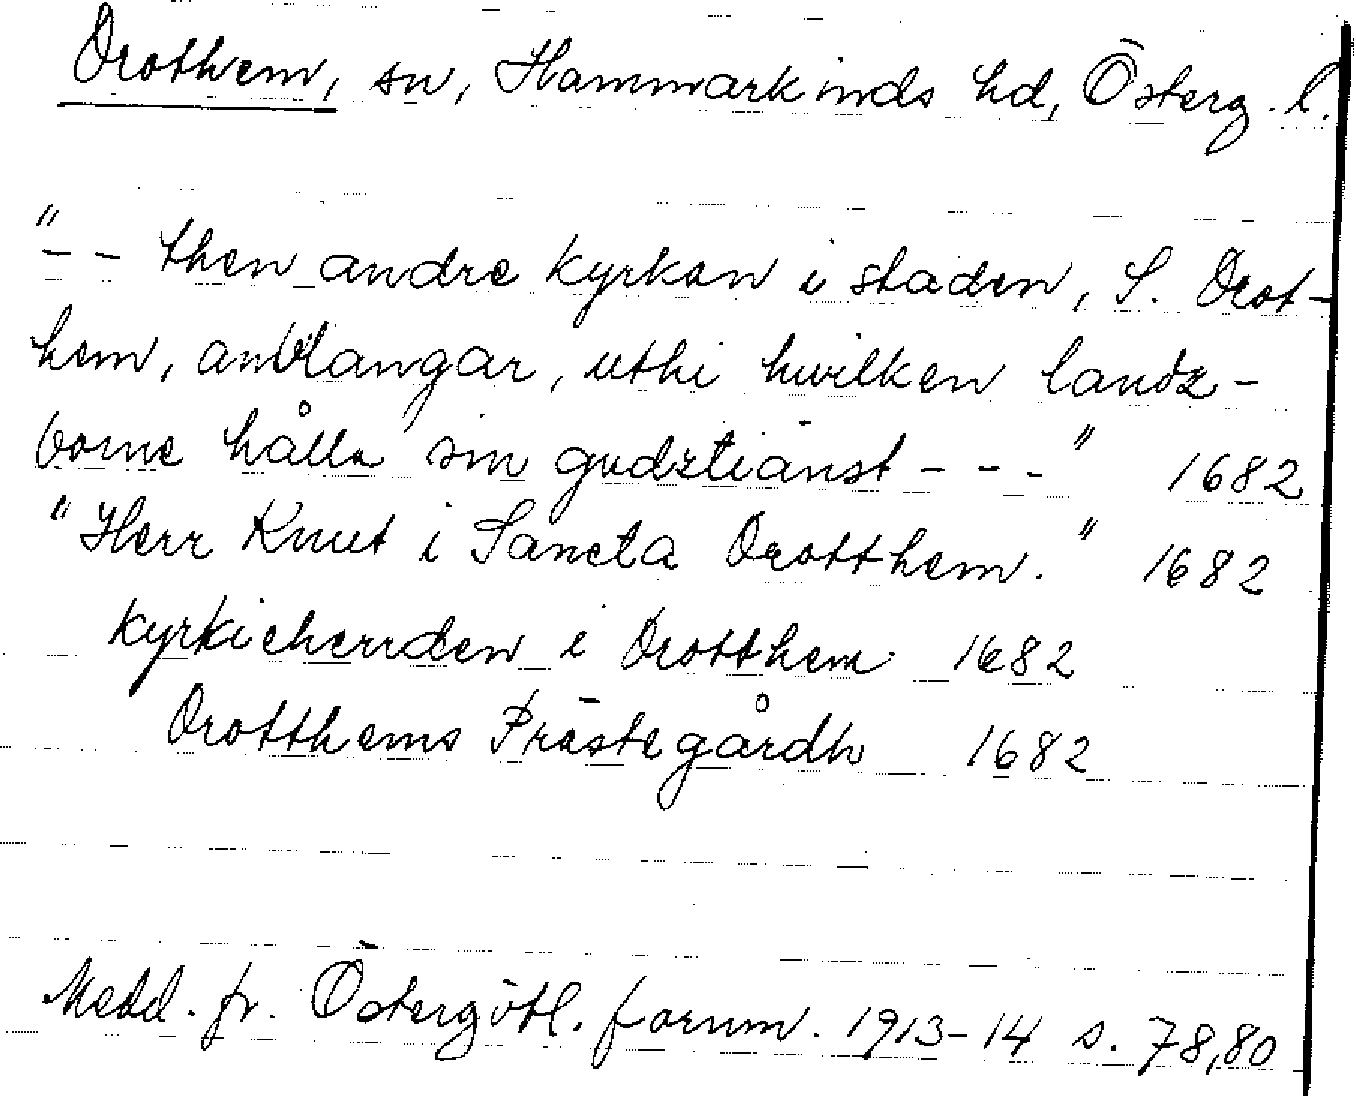 Drothem, sn, Hammarkinds hd, Österg. l.
"-- then andre kyrkan i staden, S. Drot-
hem, anblangar, uthi hwilken landz-
borne hålla sin gudztiänst ---" 1682
"Herr Knut i Sancta Drotthem." 1682
kyrkieherrden i Drotthem 1682
Drotthems Prästegårdh 1682
Medd. fr. Östergötl. fornm. 1913-14 s. 78,80